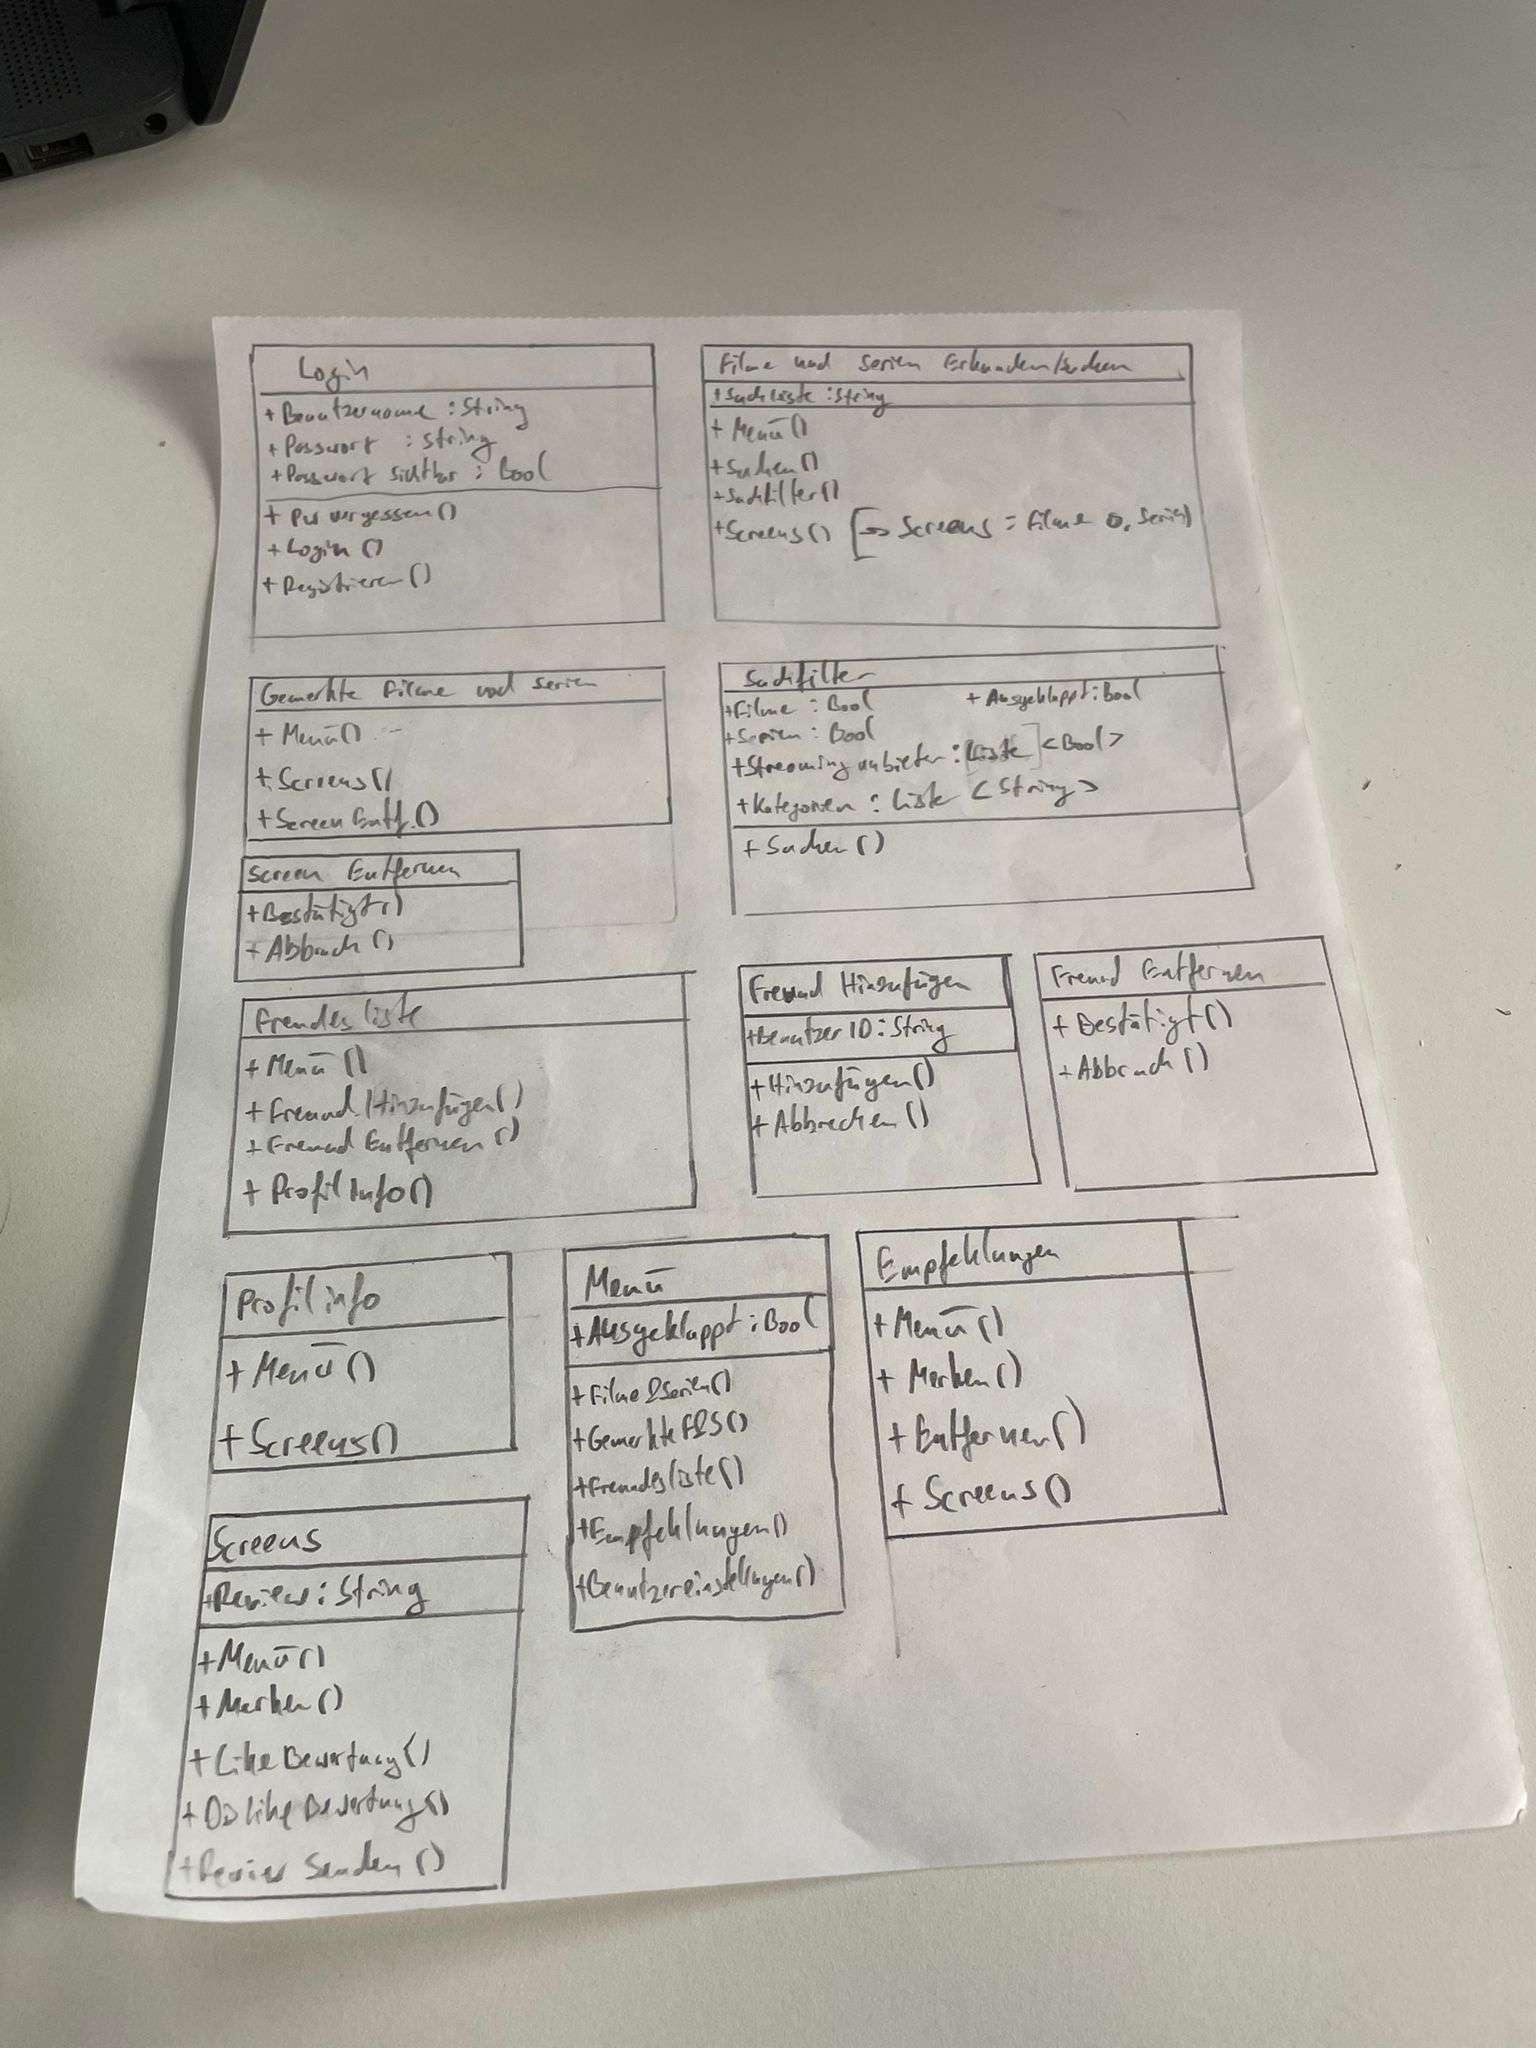 Login
+ Benutzername : String
+ Passwort : String
+ Passwort sichtbar : Bool
+ PW vergessen()
+ Login ()
+ Registrieren()
Filme und Serien Erkunden/suchen
+ Suchliste : String
+ Menü()
+ Suchen()
+ Suchfilter()
+ Screens() [→ Screens = Filme o. Serien]
Gemerkte Filme und Serien
+ Menü()
+ Screens()
+ Screen Entf.()
Suchfilter
+ Filme : Bool + Ausgeklappt : Bool
+ Serien : Bool
+ Streaminganbieter : Liste <Bool>
+ Kategorien : Liste <String>
+ Suchen()
Screen Entfernen
+ Bestätigt()
+ Abbruch()
Freundesliste
+ Menü()
+ Freund Hinzufügen()
+ Freund Entfernen()
+ Profil Info()
Freund Hinzufügen
+ Benutzer ID : String
+ Hinzufügen()
+ Abbrechen()
Freund Entfernen
+ Bestätigt()
+ Abbruch()
Profil info
+ Menü()
+ Screens()
Menü
+ Ausgeklappt : Bool
+ Filme&Serien()
+ Gemerkte F&S()
+ Freundesliste()
+ Empfehlungen()
+ Benutzereinstellungen()
Empfehlungen
+ Menü()
+ Merken()
+ Entfernen()
+ Screens()
Screens
+ Review : String
+ Menü()
+ Merken()
+ Like Bewertung()
+ Dislike Bewertung()
+ Review Senden()